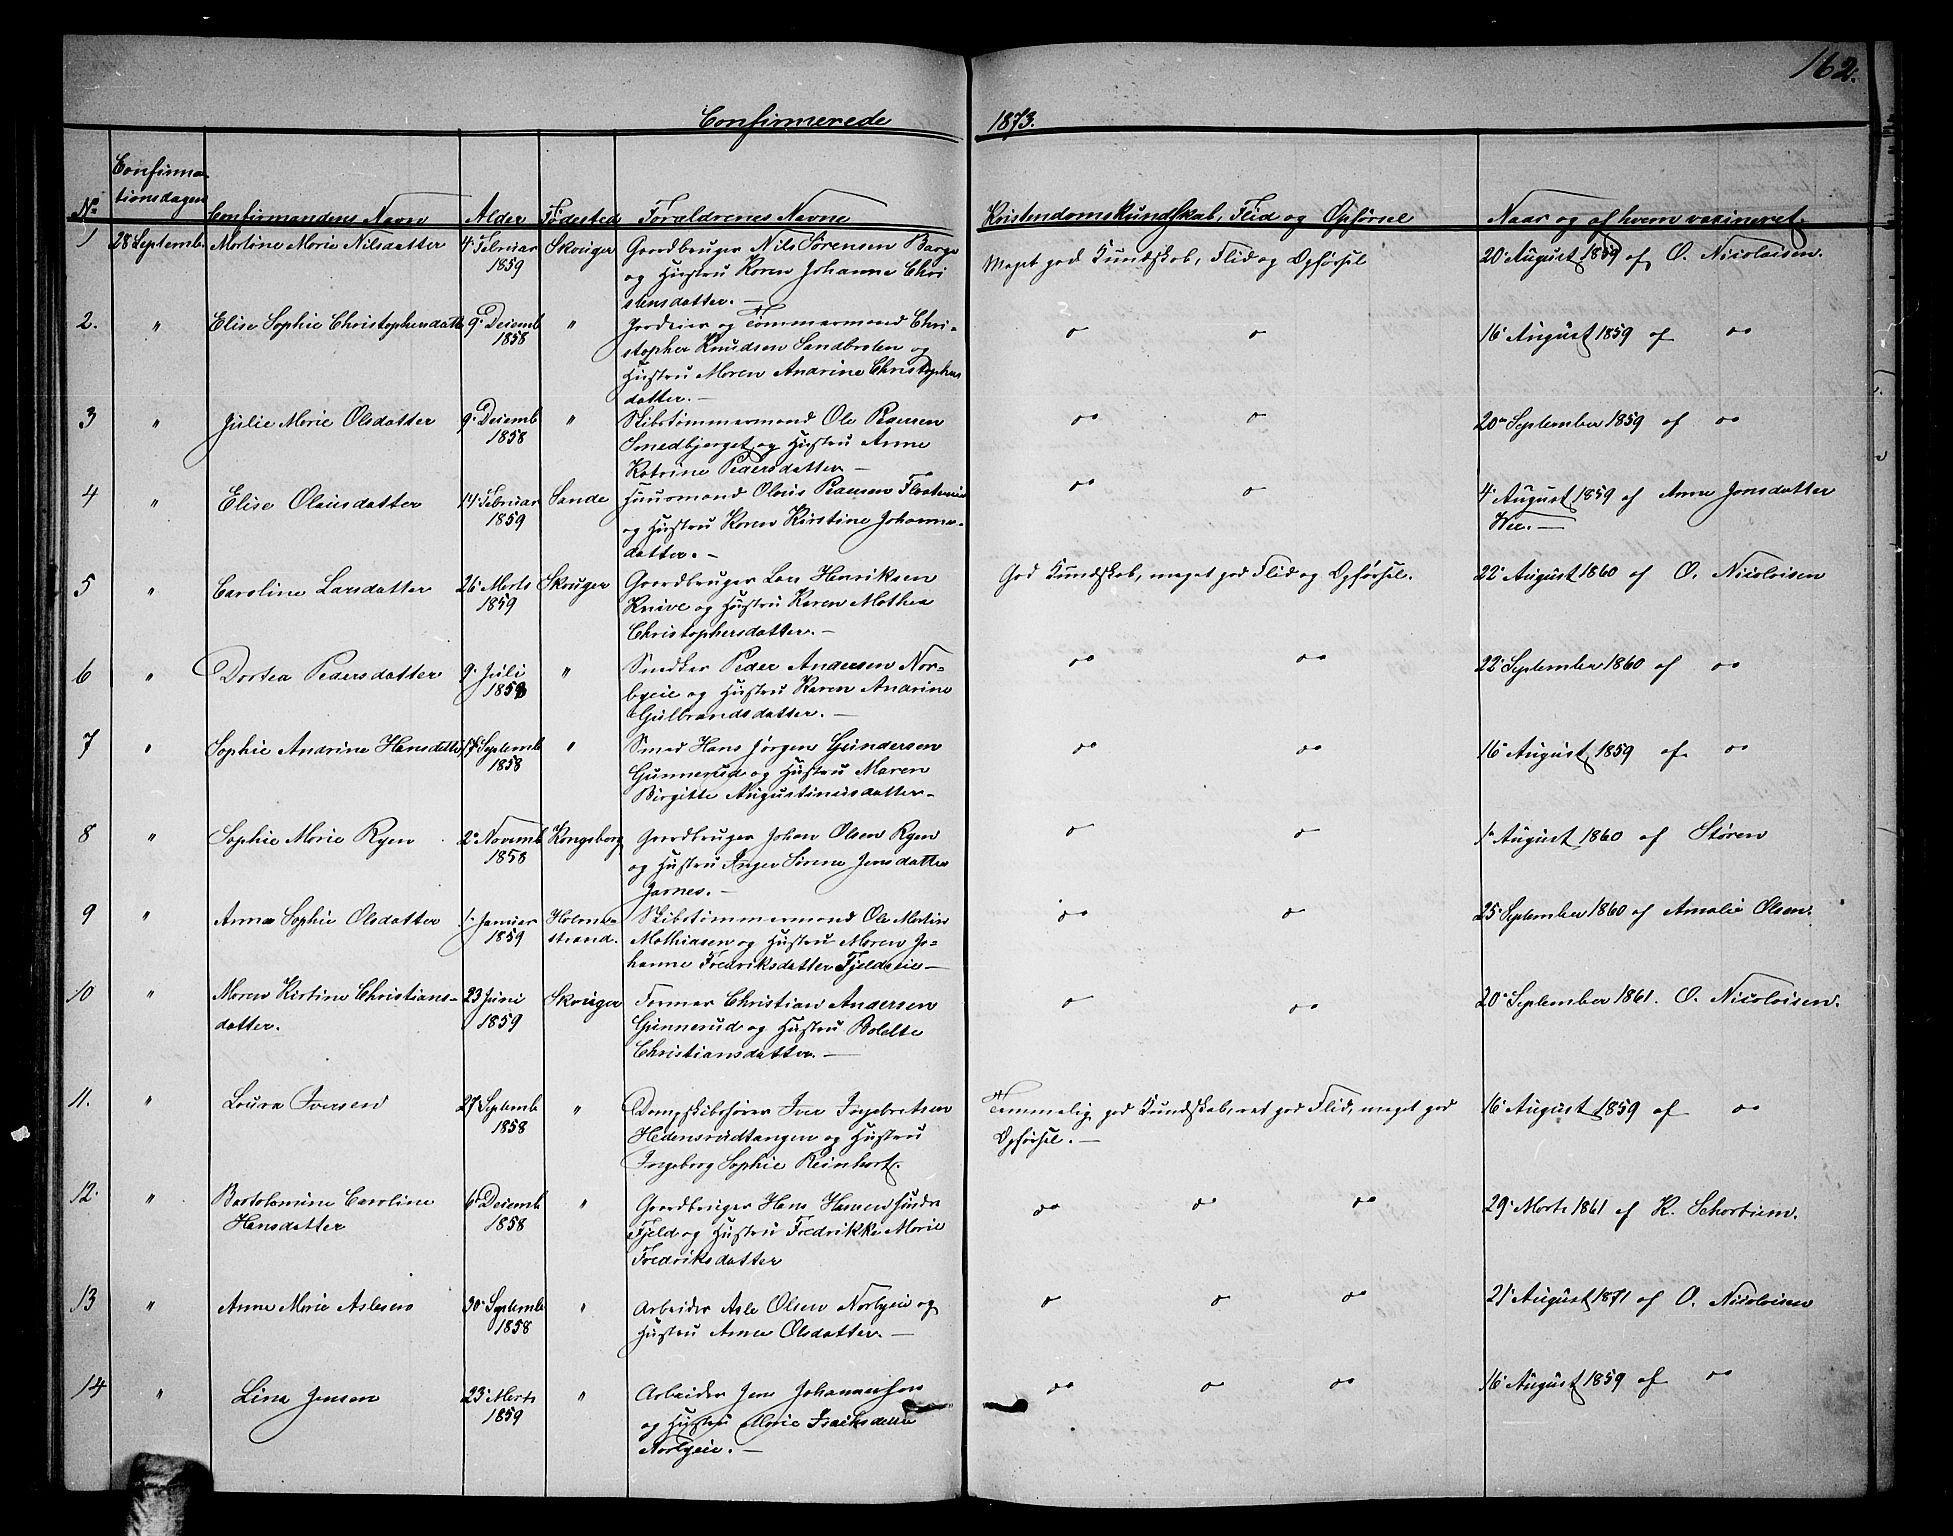 162.
Confirmerede 1873.
No Confirmationsdagen Confirmandens Navn Alder Fødested Forældrenes Navne Kristendomskundskab, Flid og Opførsel Naar og af hvem vaxineret.
1 28 Septemb. Martine Marie Nilsdatter 4. Februar 1859 Skouger Gaardbruger Nils Sørensen Berge og Hustru Karen Johanne Christensdatter. — Meget god Kundskab, Flid og Opførsel 20. August 1859 af O. Nicolaisen.
2. " Elise Sophie Christophersdatt. 9. Decemb 1858 " Jordeier og Tømmermand Christopher Knudsen Sandbroten og Hustru Maren Andrine Christophersdatter. — " " 16 August 1859 af "
3 " Julie Marie Olsdatter 9. Decemb 1858 " Skibstømmermand Ole Paulsen Smedbjerget og Hustru Anne Katrine Pedersdatter — " " 20 September 1859 af "
4 " Elise Olausdatter 14. Februar 1859 Sande Huusmand Olaus Paulsen og Hustru Karen Kirstine Johannesdatter. — " " 4. August 1859 af Anne Jonsdatter Wee. —
5 " Caroline Larsdatter 26. Marts 1859 Skouger Gaardbruger Lars Henriksen Knive og Hustru Karen Mathea Christophersdatter. — God Kundskab, meget god Flid og Opførsel. 22. August 1860 af O. Nicolaisen
6 " Dortea Pedersdatter 9. Juli 1858 " Snedker Peder Andersen Norbyeie og Hustru Karen Andrine Gulbrandsdatter. — " " 22. September 1860 af "
7 " Sophie Andrine Hansdatter Septemb 1858 " Smed Hans Jørgen Gundersen Gunnerud og Hustru Maren Birgitte Augustinusdatter — " " 16 August 1859 af "
8 " Sophie Marie Ryen 2. Novemb 1858 Kongsberg Gaardbruger Johan Olsen Ryen og Hustru Inger Sirine Jensdatter Jarnes. — " " 1. August 1860 af Støren
9 " Anna Sophie Olsdatter 1. Januar 1859 Holmestrand. Skibstømmermand Ole Martin Mathiasen og Hustru Maren Johanne Fredriksdatter Fjeldeie — " " 25. September 1860 af Amalie Olsen.
10 " Maren Kirtine Christiansdatter. 23 Juni 1859 Skouger Former Christian Andersen Gunnerud og Hustru Bolette Christiansdatter. — " " 20. September 1861. O. Nicolaisen.
11. " Laura Iversen 27. Septemb 1858 " Dampskibsfører Iver Ingebretsen Hedensrudtangen og Hustru Ingeborg Sophie Reinhart. Temmelig god Kundskab, ret god Flid, meget god Opførsel. — 16 August 1859 af "
12. " Bartolomine Caroline Hansdatter 6. Decemb 1858 " Gaardbruger Hans Fjeld og Hustru Fredrikke Marie Fredriksdatter " " " 29. Marts 1861 af K. Schartum.
13 " Anne Marie Aslesen 30. Septemb 1858 " Arbeider Asle Olsen Norbyeie og Hustru Anne Olsdatter. — " " " 21 August 1871 af O. Nicolaisen
14 " Lina Jensen 23. Marts 1859 " Arbeider Jens Johannessen og Hustru Marie Isaksdatter Norbyeie. — " " " 16 August 1859 af "